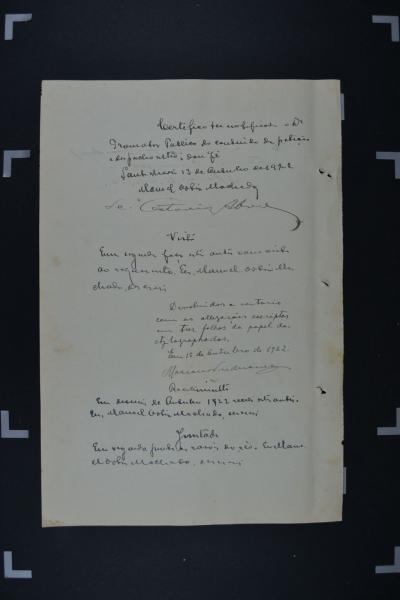 Certifico ter notificado o Dr
Promotor Publico do conteúdo da petição
e despacho retro; dou fé
Santa Maria 13 de Outubro de 1922
Manoel Machado
Vista
Em seguida faço estes autos com vista
ao requerente. Eu, Manoel Ma
chado, escrevi
Devolvidos a cartorio
com as allegações escriptas
em tres folhas de papel da
ctylographadas.
Em 16 de Outubro de 1922.
Recebimento
Em de Outubro 1922 recebi estes autos.
Eu, Manoel Machado, escrevi
Juntada
Em seguida junto as razões do réo. Eu Mano
el Machado, escrevi